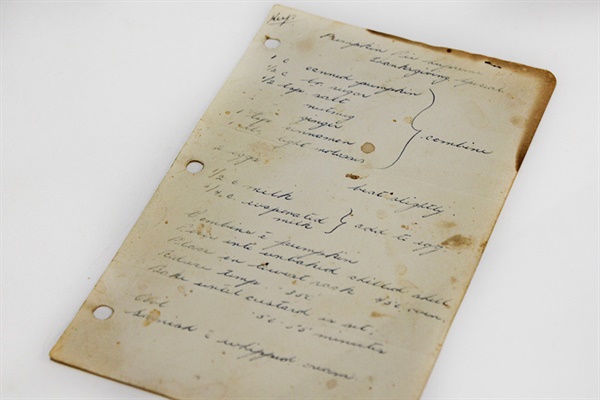 Pumpkin Pie Supreme
Thanksgiving Special
1 c canned pumpkin
1/2 c br. sugar
1/2 tsp salt
nutmeg
1 tsp ginger
cinnamon
light molasses
combine
2 eggs beat slightly.
1/2 c milk
3/4 c evaporated
milk
add to egg
Combine c̄ pumpkin
Pour into unbaked chilled shell
Place on lowest rack 450 oven.
Reduce temp. 350
Bake until custard is set.
50-55 minutes
Chill
Garnish c̄ whipped cream.